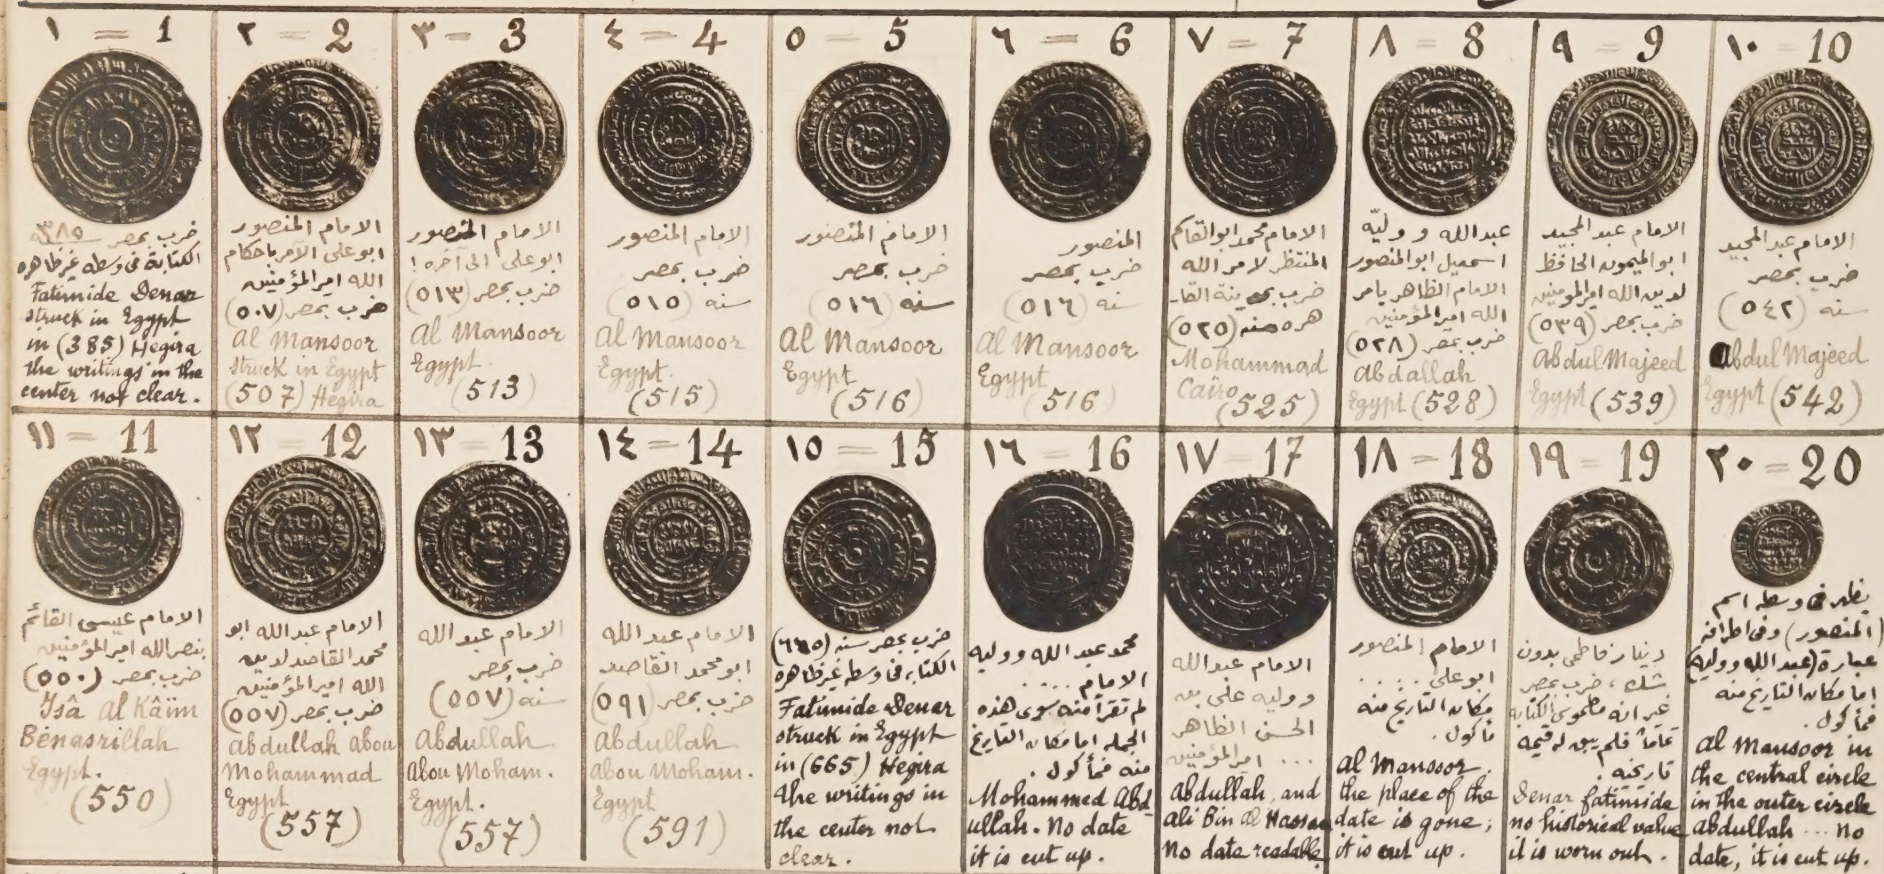 ١ = 1
ضرب بمصر ٣٨٥
الكتابة فى وسطه غير ظاهره
Fatimide Denar
struck in Egypt
in (385) Hegira
the writings in the
center not clear.
٢ = 2
الامام المنصور
ابو على الآمر باحكام
الله امير المؤمنين
ضرب بمصر (٥٠٧)
Al Mansoor
struck in Egypt
(507) Hegira
٣ = 3
الامام المنصور
ابو على الى آخره !
ضرب بمصر (٥١٣)
Al Mansoor
Egypt.
(513)
٤ = 4
الامام المنصور
ضرب بمصر
سنه (٥١٥)
Al Mansoor
Egypt.
(515)
٥ = 5
الامام المنصور
ضرب بمصر
سنه (٥١٦)
Al Mansoor
Egypt
(516)
٦ = 6
المنصور
ضرب بمصر
سنه (٥١٦)
Al Mansoor
Egypt
(516)
٧ = 7
الامام محمد ابو القاسم
المنتظر لامر الله
ضرب بمدينة القا-
هره سنه (٥٢٥)
Mohammad
Cairo
(525)
٨ = 8
عبدالله ووليّه
اسمعيل ابو المنصور
الامام الظاهر بامر
الله امير المؤمنين
ضرب بمصر (٥٢٨)
Abdallah
Egypt (528)
٩ = 9
الامام عبد المجيد
ابو الميمون الحافظ
لدين الله امير المؤمنين
ضرب بمصر (٥٣٩)
Abdul Majeed
Egypt (539)
١٠ = 10
الامام عبد المجيد
ضرب بمصر
سنه (٥٤٢)
Abdul Majeed
Egypt (542)
١١ = 11
الامام عيسى القائم
بنصر الله امير المؤمنين
ضرب بمصر (٥٥٠)
Isâ Al Kâim
Benasrillah
Egypt.
(550)
١٢ = 12
الامام عبدالله ابو
محمد القاصد لدين
الله امير المؤمنين
ضرب بمصر (٥٥٧)
Abdullah Abou
Mohammad
Egypt
(557)
١٣ = 13
الامام عبد الله
ضرب بمصر
سنه (٥٥٧)
Abdullah
Abou Moham.
Egypt.
(557)
١٤ = 14
الامام عبد الله
ابو محمد القاصد
ضرب بمصر (٥٩١)
Abdullah
Abou Moham.
Egypt
(591)
١٥ = 15
ضرب بمصر سنه (٦٦٥)
الكتابه فى وسطه غير ظاهره
Fatimide Denar
struck in Egypt
in (665) Hegira
the writings in
the center not
clear.
١٦ = 16
محمد عبد الله ووليه
الامام .....
لم تقرأ منه سوى هذه
الجمله اما مكان التاريخ
منه فمأكول.
Mohammed Abd-
ullah. No date
it is cut up.
١٧ = 17
الامام عبدالله
ووليه على بن
الحسن الظاهر
... امير المؤمنين
Abdullah, and
Ali Bin Al Hassan
No date readable
١٨ = 18
الامام المنصور
ابو على .....
مكان التاريخ منه
مأكول.
Al Mansoor.
the place of the
date is gone;
it is cut up.
١٩ = 19
دينار فاطمى بدون
شك، ضرب بمصر
غير انه مطموس الكتابه
تماماً فلم يبق له قيمه
تاريخيه.
Denar fatimide
no historical value
it is worn out.
٢٠ = 20
يظهر فى وسطه اسم
(المنصور) وفى اطرافه
عبارة (عبد الله ووليه)
اما مكان التاريخ منه
فمأكول.
Al Mansoor in
the central circle
in the outer circle
Abdullah ... No
date, it is cut up.